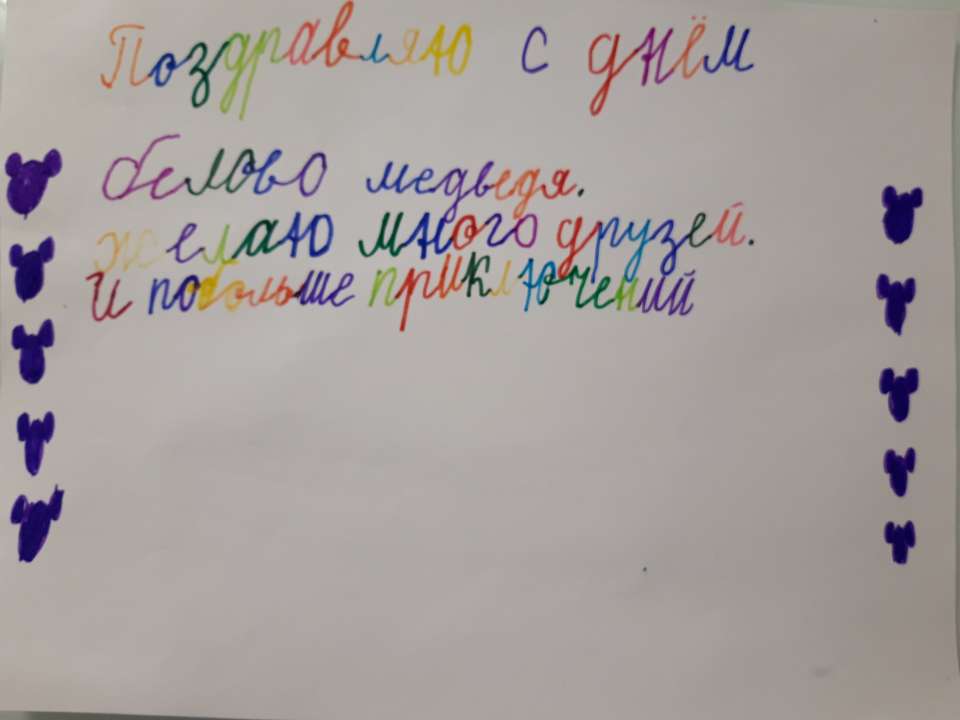 Поздравляю с днём
белово медведя.
желаю много друзей.
И побольше приключений